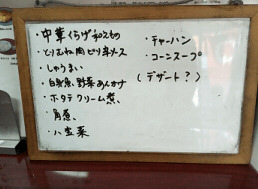 ・中華くらげ和えもの
・とりむね肉ピリ辛ソース
・しゅうまい
・白身魚、野菜あんかけ
・ホタテクリーム煮、
・角煮、
・八宝菜
・チャーハン
・コーンスープ
(デザート?)